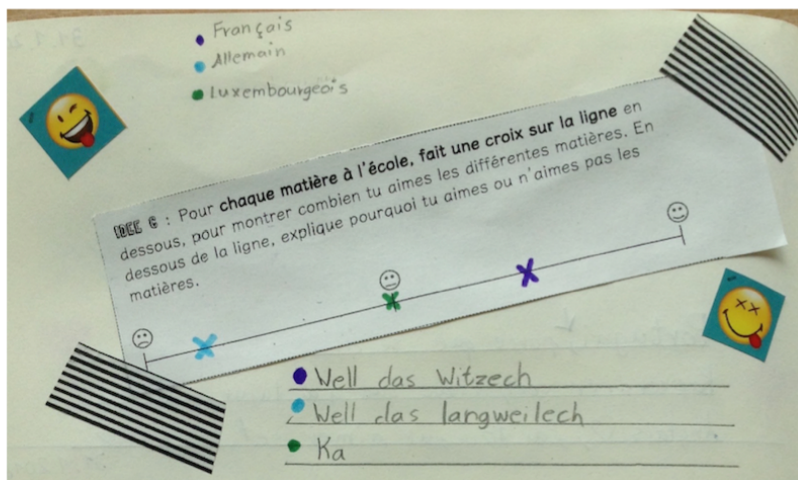 Français
Allemain
Luxembourgeois
IDEE 6 : Pour chaque matière à l'école, fait une croix sur la ligne en
dessous, pour montrer combien tu aimes les différentes matières. En
dessous de la ligne, explique pourquoi tu aimes ou n'aimes pas les
matières.
Well das Witzech
Well das langweilech
Ka